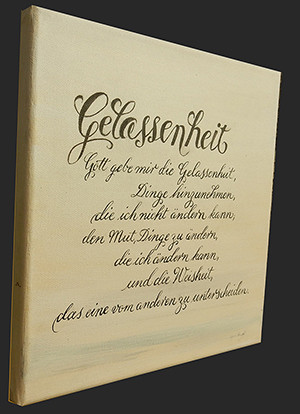 Gelassenheit
Gott gebe mir die Gelassenheit,
Dinge hinzunehmen,
die ich nicht ändern kann,
den Mut, Dinge zu ändern,
die ich ändern kann,
und die Weisheit,
das eine vom anderen zu unterscheiden.